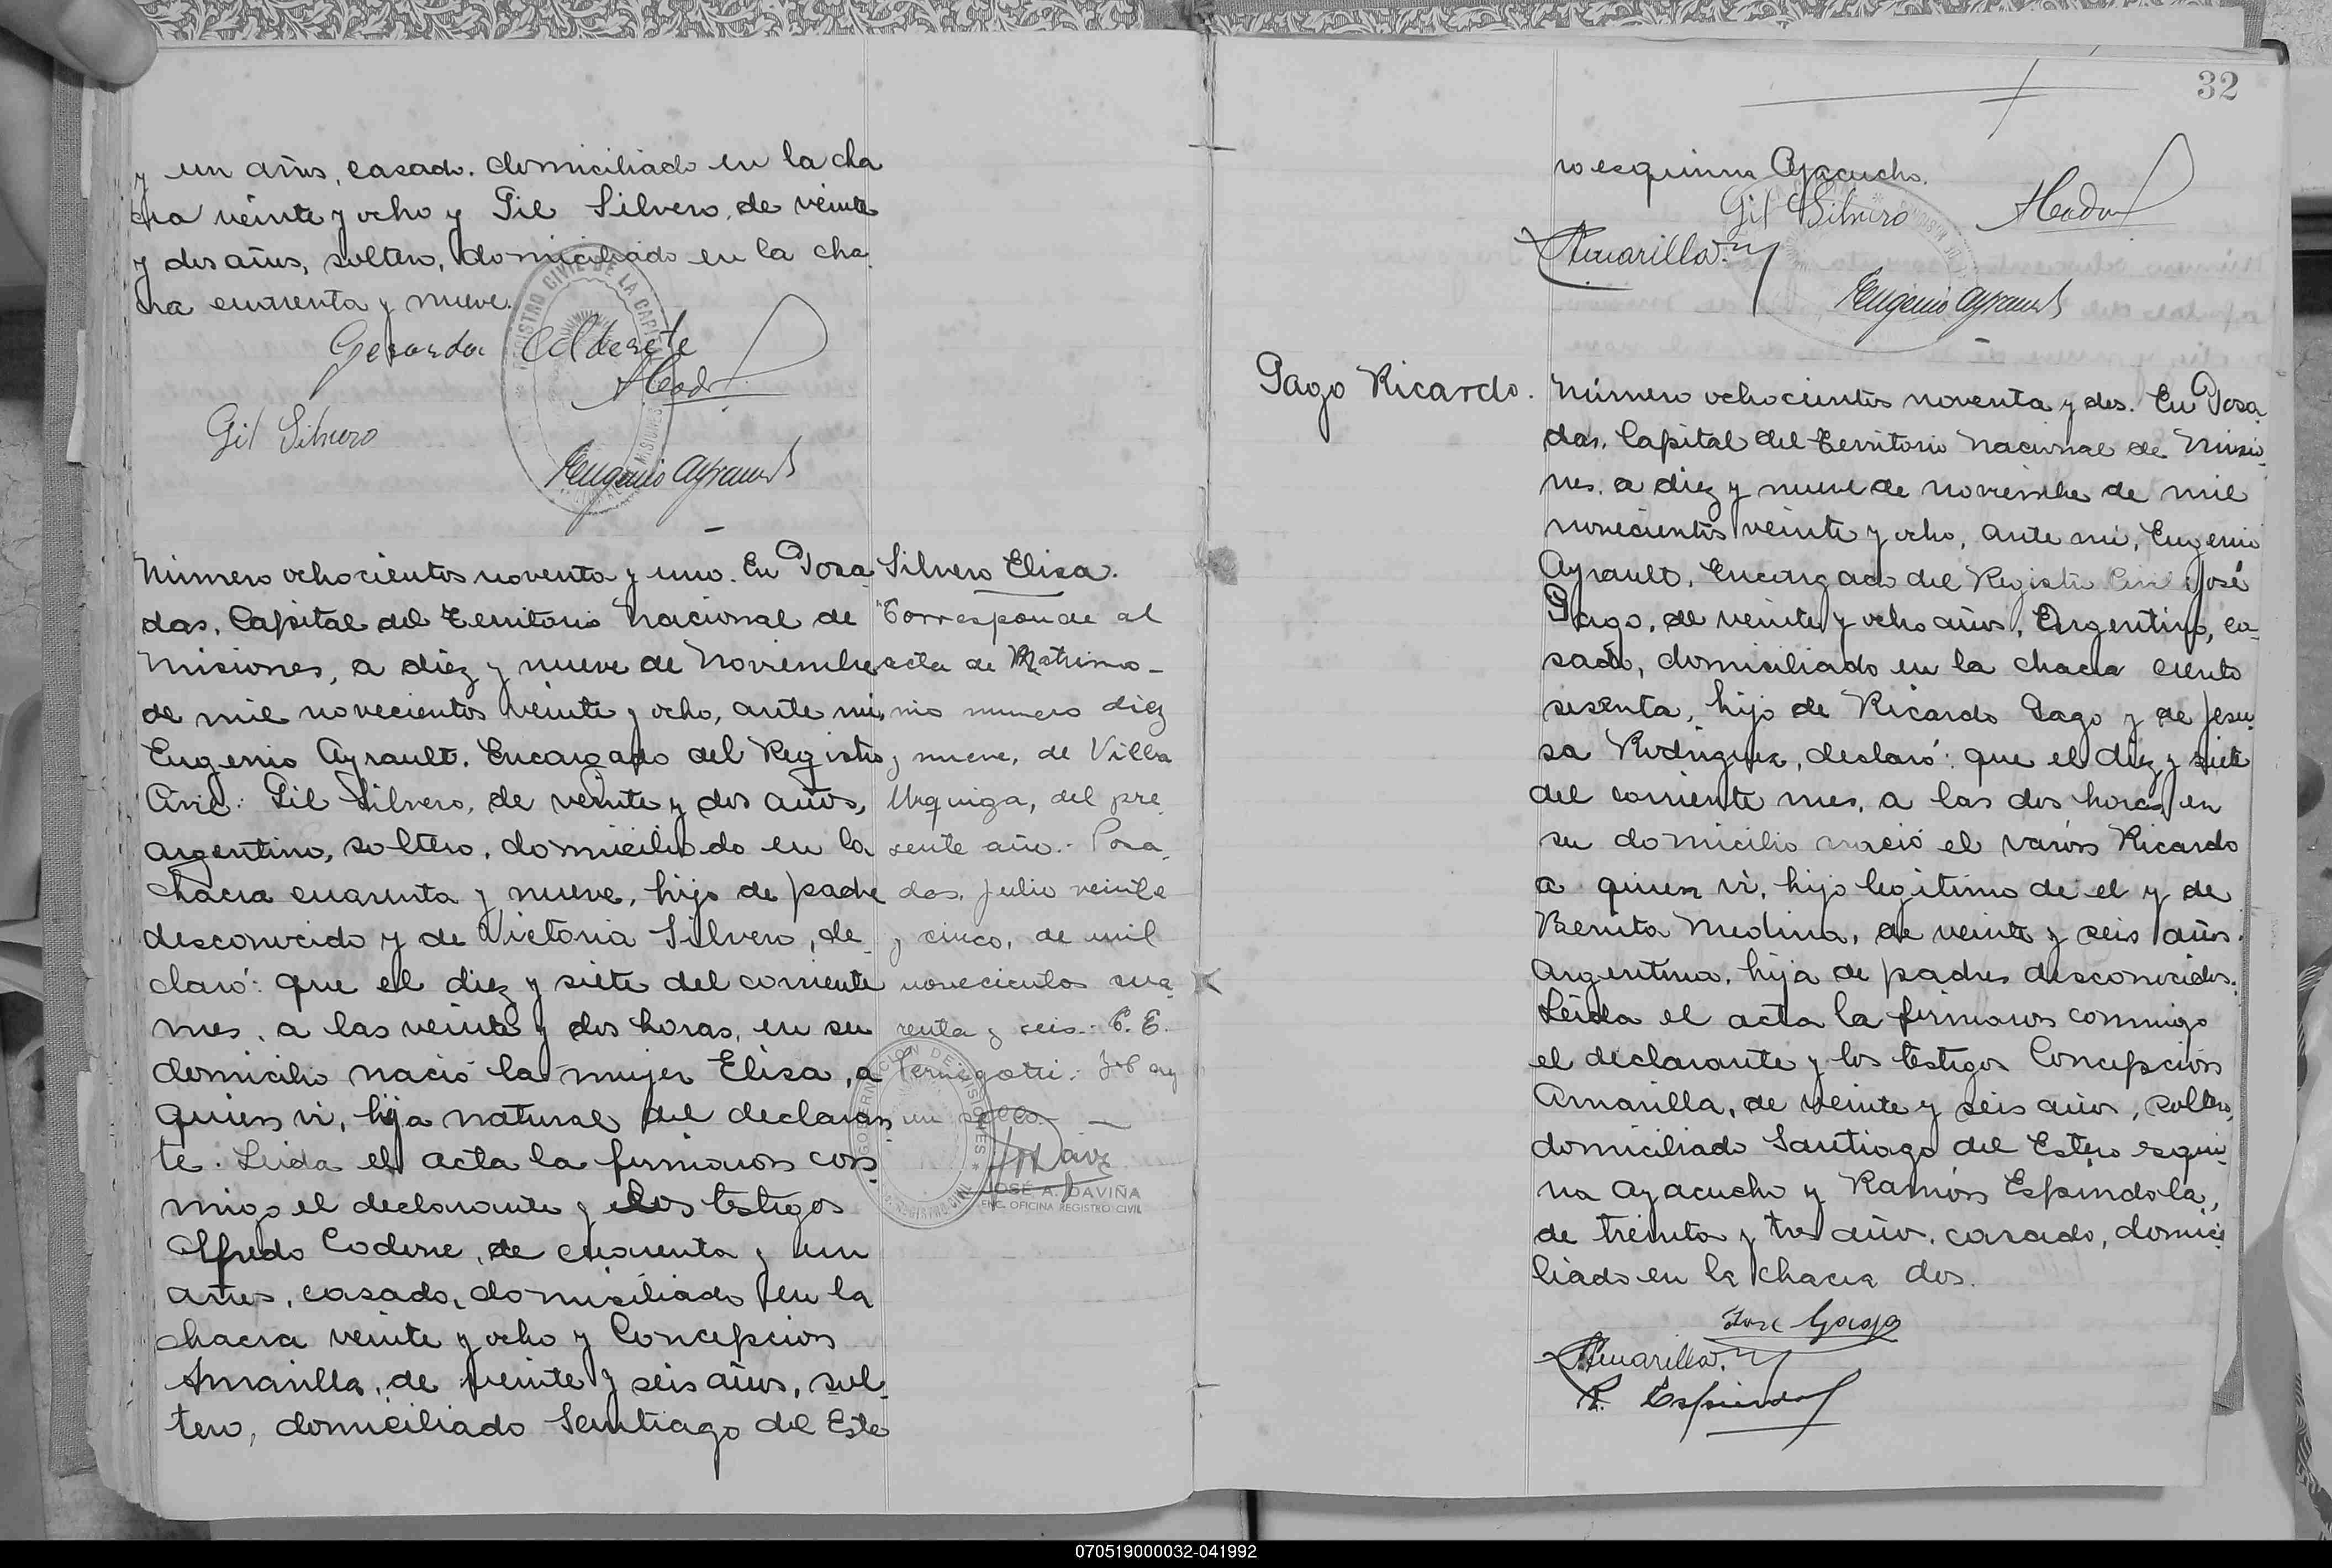 y un años, casado. domiciliado en la cha
cra veinte y ocho y Gil Silvero, de veinte
y dos años, soltero, domiciliado en la cha
cra cuarenta y nueve.
Gerardo Alderete
Gil Silvero
Eugenio Ayrault
Número ochocientos noventa y uno. En Posa
das, Capital del Territorio Nacional de
Misiones, a diez y nueve de Noviembre
de mil novecientos veinte y ocho, ante mi,
Eugenio Ayrault. Encargado del Registro
Civil: Gil Silvero, de veinte y dos años,
argentino, soltero, domiciliado en la
chacra cuarenta y nueve, hijo de padre
desconocido y de Victoria Silvero, de-
claró: que el diez y siete del corriente
mes, a las veinte y dos horas, en su
domicilio nació la mujer Elisa, a
quien vi, hija natural del declaran
te. Leida el acta la firmaron con
migo el declarante y los testigos
Alfredo Coderre, de cuarenta y un
años, casado, domiciliado en la
chacra veinte y ocho y Concepcion
Amarilla, de veinte y seis años, sol-
tero, domiciliado Santiago del Este
Silvero Elisa.
"Corresponde al
acta de Matrimo-
nio numero diez
y nueve, de Villa
Urquiza, del pre-
sente año.- Posa-
das, Julio veinte
y cinco, de mil
novecientos cua-
renta y seis.- C. E.
Hay
un sello.-
JOSÉ A. DAVIÑA
ENC. OFICINA REGISTRO CIVIL
GOBERNACION DE MISIONES
REGISTRO CIVIL
32
ro esquina Ayacucho.
Gil Silvero
Amarilla
Eugenio Ayrault
Gago Ricardo.
Número ochocientos noventa y dos. En Posa
das, Capital del Territorio Nacional de Misio-
nes, a diez y nueve de noviembre de mil
novecientos veinte y ocho, ante mi, Eugenio
Ayrault, Encargado del Registro Civil José
Gago, de veinte y ocho años, Argentino, ca-
sado, domiciliado en la chacra ciento
sesenta, hijo de Ricardo Gago y de Jesu
sa Rodriguez, declaró: que el diez y siete
del corriente mes, a las dos horas, en
su domicilio nació el varón Ricardo
a quien vi, hijo legitimo de el y de
Benita Medina, de veinte y seis años.
Argentina, hija de padres desconocidos.
Leida el acta la firmaron conmigo
el declarante y los testigos Concepción
Amarilla, de veinte y seis años, soltero,
domiciliado Santiago del Estero esqui-
na Ayacucho y Ramón Espindola,
de treinta y tres años, casado, domici
liado en la chacra dos.
José Gago
Amarilla
R. Espindola
070519000032-041992